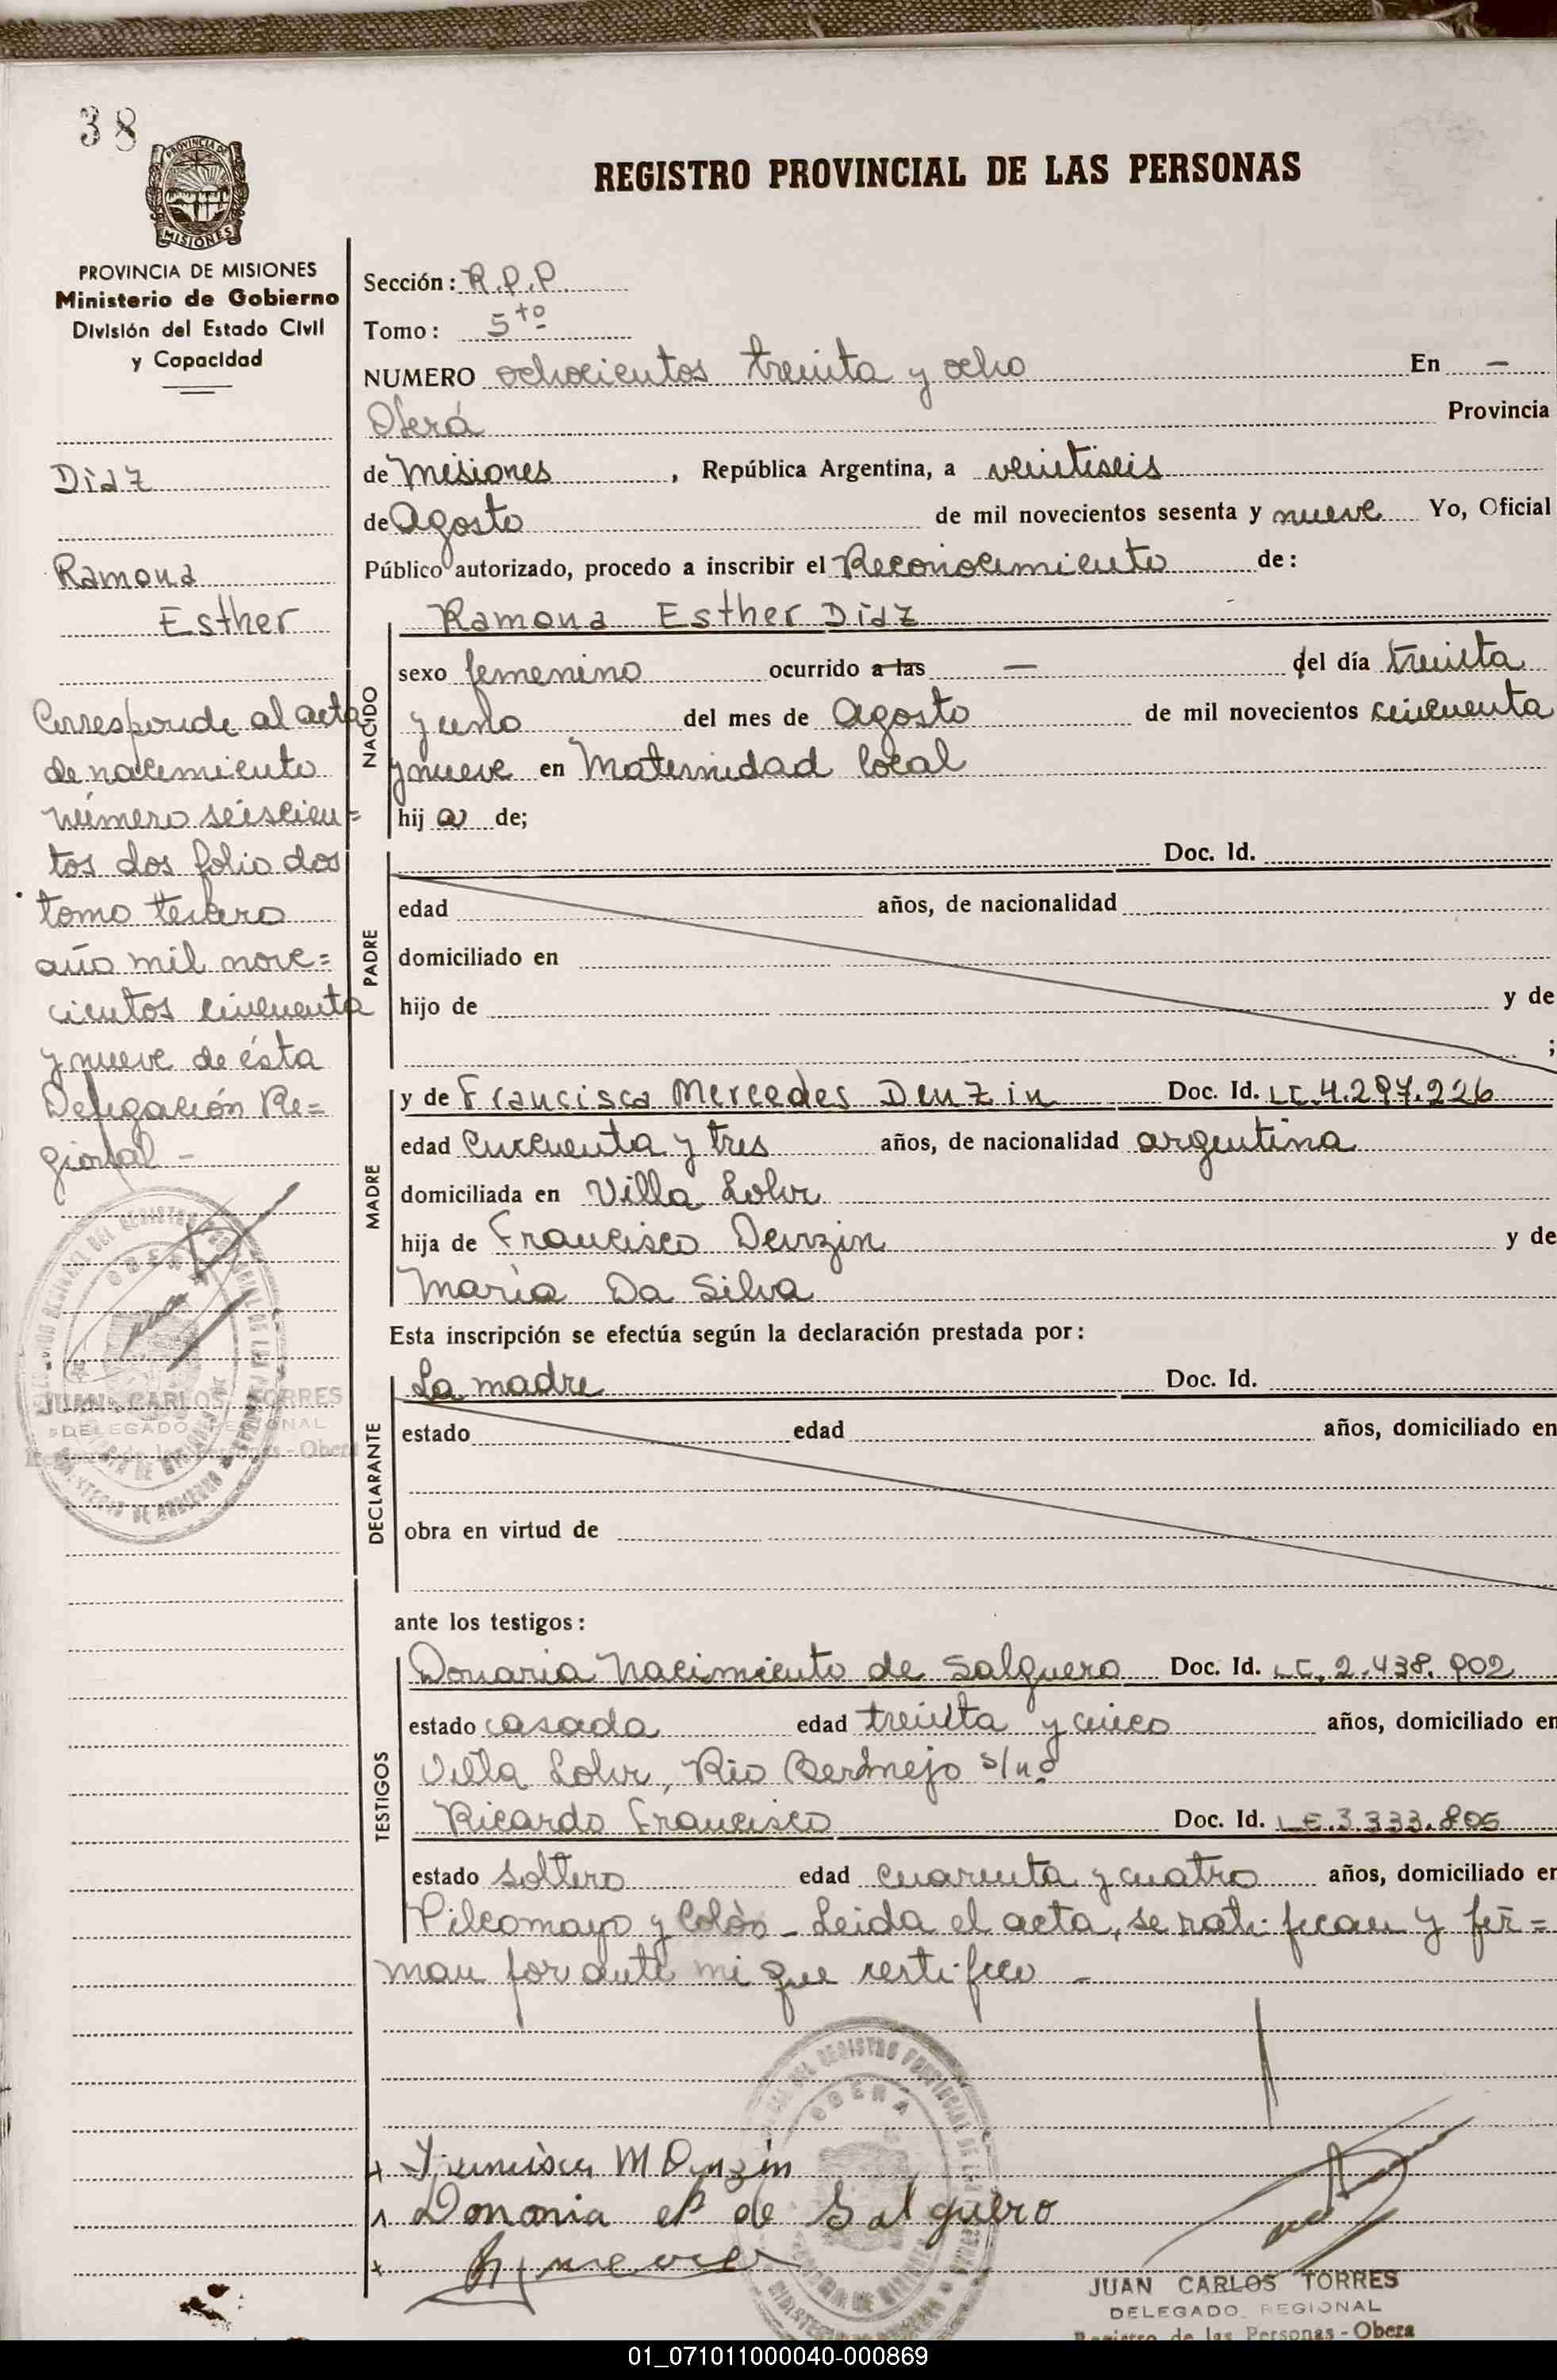 38
PROVINCIA DE
MISIONES
REGISTRO PROVINCIAL DE LAS PERSONAS
PROVINCIA DE MISIONES
Ministerio de Gobierno
División del Estado Civil
y Capacidad
Díaz
Ramona
Esther
Corresponde al acta
de nacimiento
número seiscien=
tos dos folio dos
tomo tercero
año mil nove=
cientos cincuenta
y nueve de ésta
Delegación Re=
gional -
JUAN CARLOS TORRES
DELEGADO REGIONAL
Registro de las Personas - Obera
Sección: R.P.P.
Tomo: 5to
NUMERO ochocientos treinta y ocho En -
Oberá Provincia
de Misiones, República Argentina, a veintiseis
de Agosto de mil novecientos sesenta y nueve Yo, Oficial
Público autorizado, procedo a inscribir el Reconocimiento de:
Ramona Esther Díaz
NACIDO
sexo femenino ocurrido a las — del día treinta
y uno del mes de Agosto de mil novecientos cincuenta
y nueve en Maternidad local
hij a de;
PADRE
Doc. Id.
edad años, de nacionalidad
domiciliado en
hijo de y de
;
MADRE
y de Francisca Mercedes Denzin Doc. Id. LC.4.297.226
edad cincuenta y tres años, de nacionalidad argentina
domiciliada en Villa Lohr
hija de Francisco Denzin y de
María Da Silva
Esta inscripción se efectúa según la declaración prestada por:
DECLARANTE
La madre Doc. Id.
estado edad años, domiciliado en
obra en virtud de
ante los testigos:
TESTIGOS
Donaria Nacimiento de Salguero Doc. Id. LC.2.438.902
estado casada edad treinta y cinco años, domiciliado en
Villa Lohr, Río Bermejo s/nº
Ricardo Francisco Doc. Id. LE.3.333.805
estado soltero edad cuarenta y cuatro años, domiciliado en
Pilcomayo y Colón - Leida el acta, se ratifican y fir=
man por ante mi que certifico -
Francisca M Denzin
Donaria de Salguero
OBERA
JUAN CARLOS TORRES
DELEGADO REGIONAL
Registro de las Personas - Obera
01_071011000040-000869